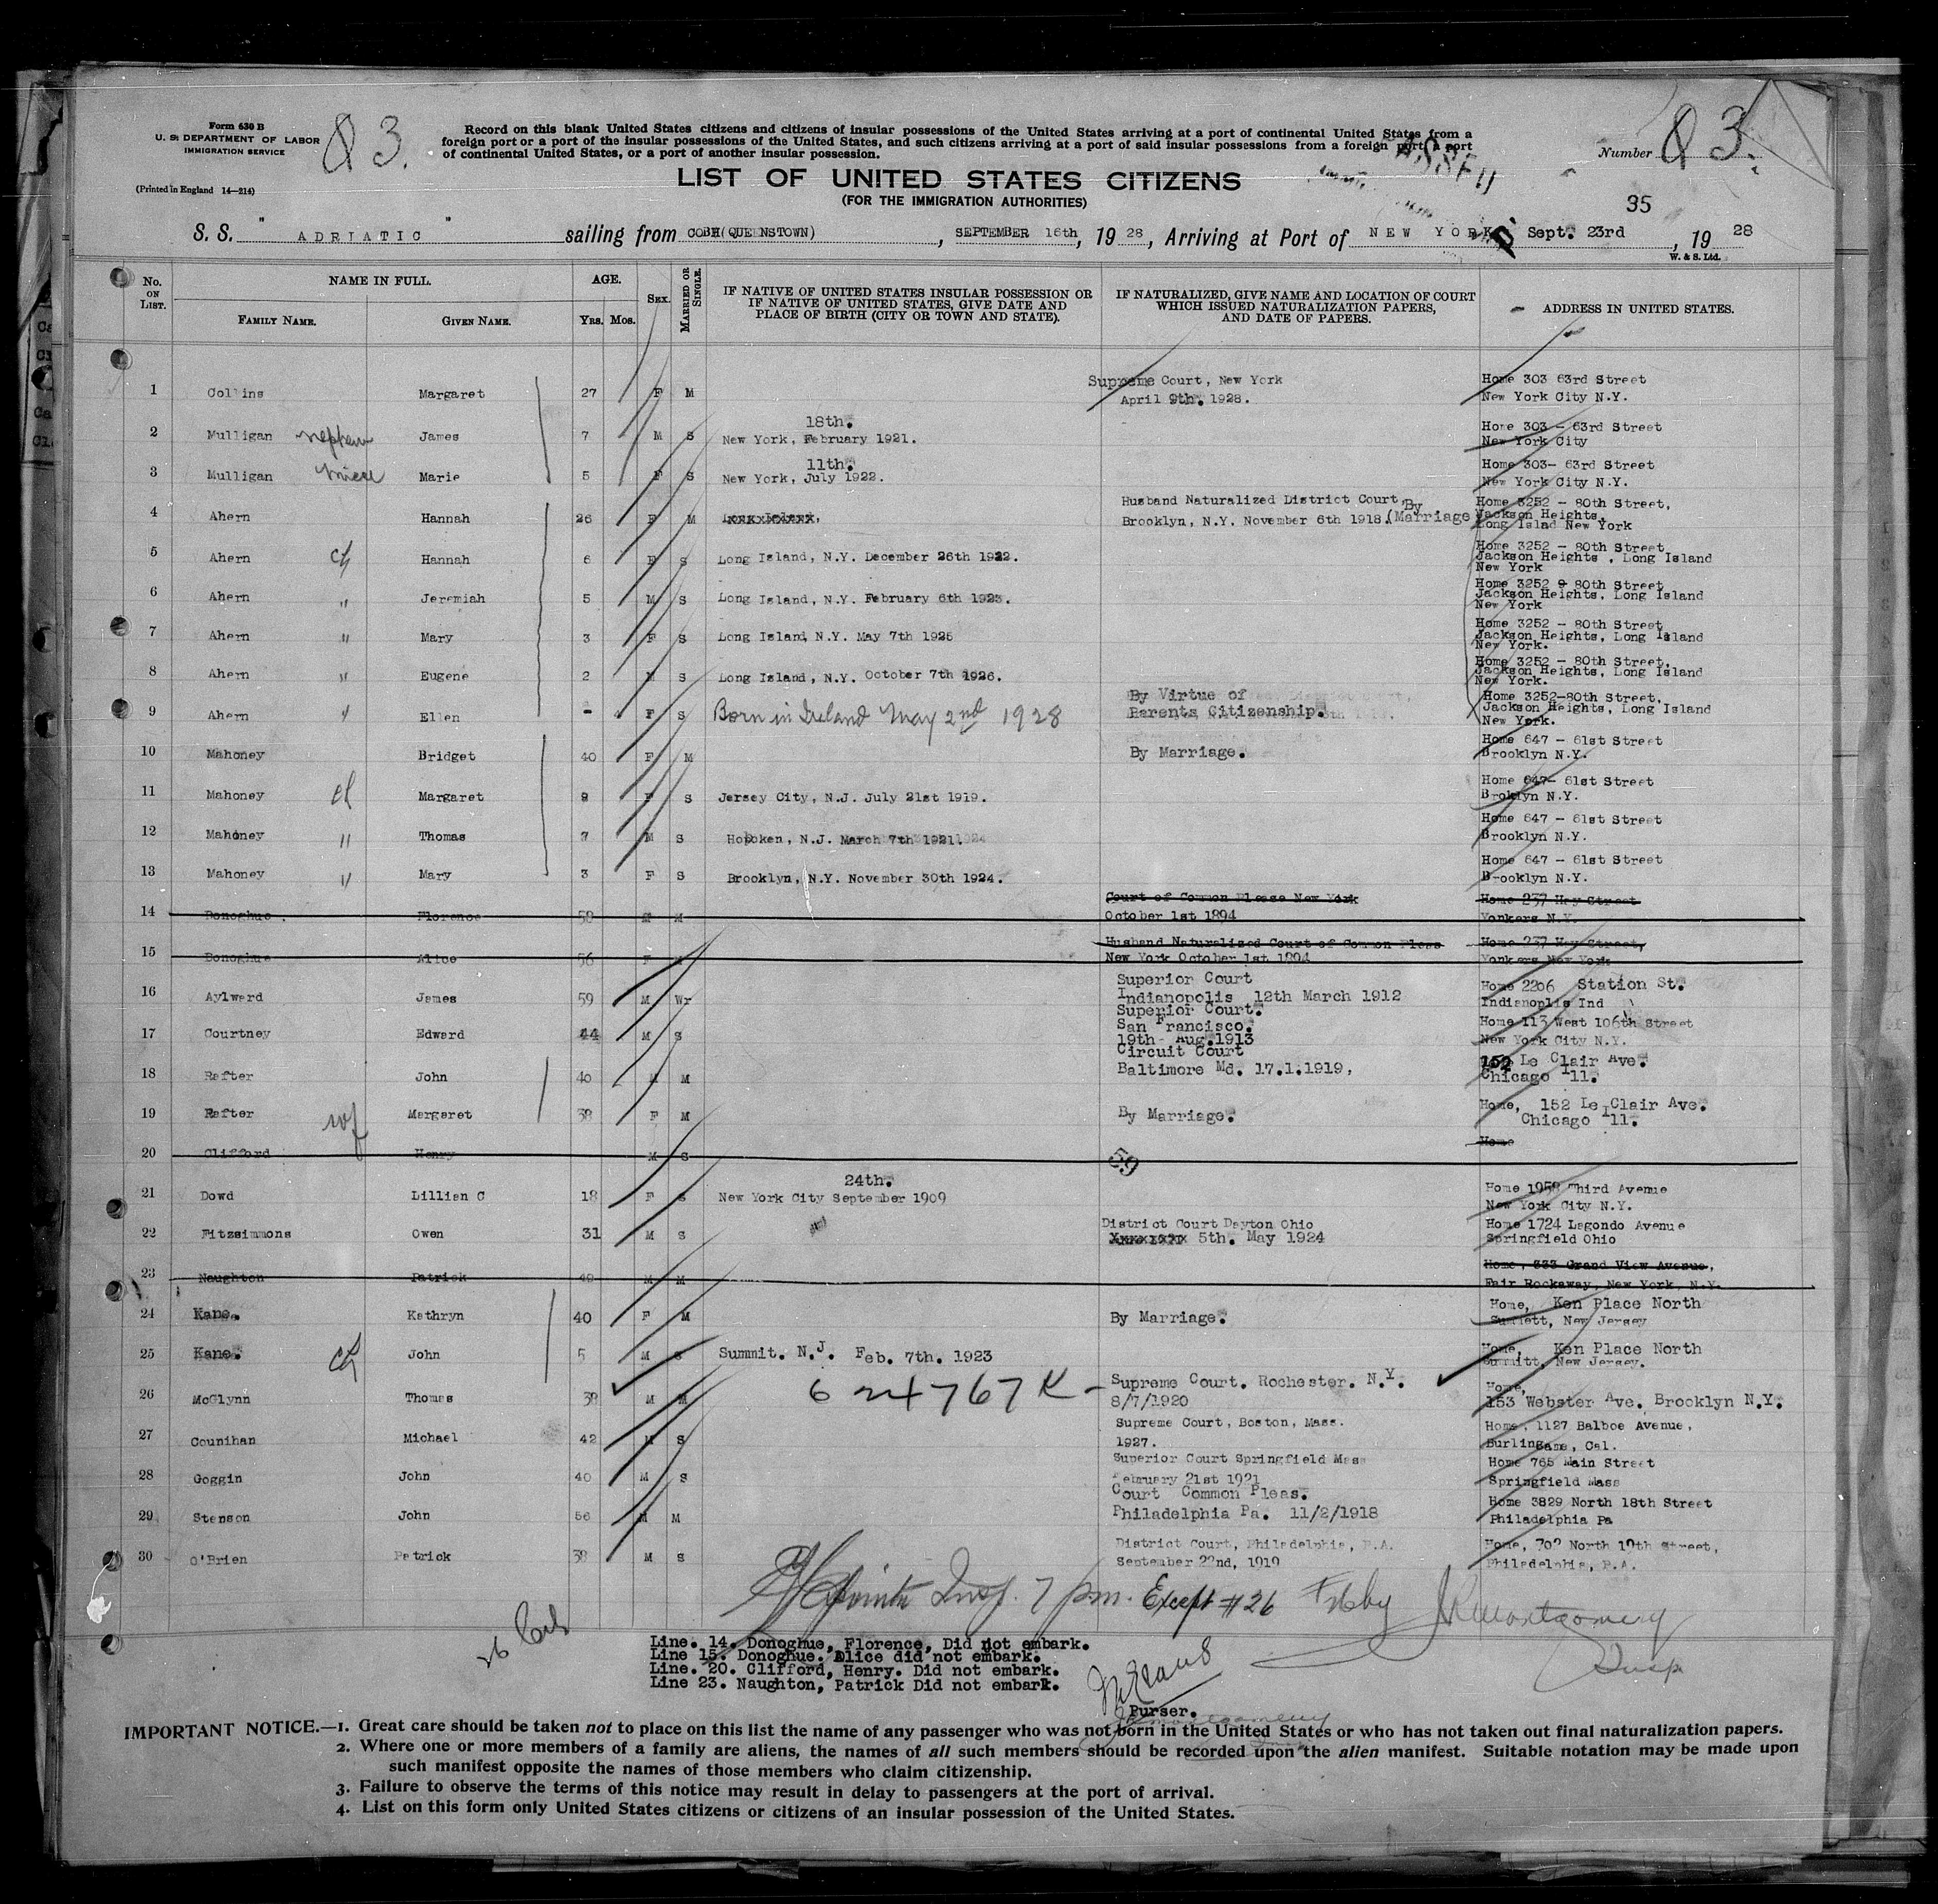 Form 630 B
U. S. DEPARTMENT OF LABOR
IMMIGRATION SERVICE
(Printed in England 14—214)
Q 3.
Record on this blank United States citizens and citizens of insular possessions of the United States arriving at a port of continental United States from a
foreign port or a port of the insular possessions of the United States, and such citizens arriving at a port of said insular possessions from a foreign port, a port
of continental United States, or a port of another insular possession.
Number Q 3.
LIST OF UNITED STATES CITIZENS
(FOR THE IMMIGRATION AUTHORITIES)
35
S. S. " ADRIATIC " sailing from COBH(QUEENSTOWN), SEPTEMBER 16th, 19 28, Arriving at Port of NEW YORK Sept. 23rd, 19 28
W. & S. Ltd.
No. ON LIST. NAME IN FULL. FAMILY NAME. GIVEN NAME. AGE. Yrs. Mos. SEX. MARRIED OR SINGLE. IF NATIVE OF UNITED STATES INSULAR POSSESSION OR IF NATIVE OF UNITED STATES, GIVE DATE AND PLACE OF BIRTH (CITY OR TOWN AND STATE). IF NATURALIZED, GIVE NAME AND LOCATION OF COURT WHICH ISSUED NATURALIZATION PAPERS, AND DATE OF PAPERS. ADDRESS IN UNITED STATES.
1 Collins Margaret 27 F M Supreme Court, New York April 9th. 1928. Home 303 63rd Street New York City N.Y.
2 Mulligan nephew James 7 M S New York, February 18th. 1921. Home 303 - 63rd Street New York City
3 Mulligan niece Marie 5 F S New York, July 11th. 1922. Home 303- 63rd Street New York City N.Y.
4 Ahern Hannah 26 F M Husband Naturalized District Court, Brooklyn, N.Y. November 6th 1918. (By Marriage Home 3252 - 80th Street, Jackson Heights, Long Islad New York
5 Ahern ch Hannah 6 F S Long Island, N.Y. December 26th 1922. Home 3252 - 80th Street, Jackson Heights, Long Island New York
6 Ahern " Jeremiah 5 M S Long Island, N.Y. February 6th 1923. Home 3252 9 80th Street, Jackson Heights, Long Island New York
7 Ahern " Mary 3 F S Long Island, N.Y. May 7th 1925 Home 3252 - 80th Street, Jackson Heights, Long Island New York.
8 Ahern " Eugene 2 M S Long Island, N.Y. October 7th 1926. Home 3252 - 80th Street, Jackson Heights, Long Island New York.
9 Ahern " Ellen - F S Born in Ireland May 2nd 1928 By Virtue of Parents Citizenship. Home 3252-80th Street, Jackson Heights, Long Island New York.
10 Mahoney Bridget 40 F M By Marriage. Home 647 - 61st Street Brooklyn N.Y.
11 Mahoney ch Margaret 9 F S Jersey City, N.J. July 21st 1919. Home 647- 61st Street Broklyn N.Y.
12 Mahoney " Thomas 7 M S Hoboken, N.J. March 7th 1921. Home 647 - 61st Street Brooklyn N.Y.
13 Mahoney " Mary 3 F S Brooklyn, N.Y. November 30th 1924. Home 647 - 61st Street Brooklyn N.Y.
14 Donoghue Florence 58 M M Court of Common Please New York October 1st 1894 Home 237 Hay Street Yonkers N.Y.
15 Donoghue Alice 56 F M Husband Naturalized Court of Common Pleas New York October 1st 1894 Home 237 Hay Street, Yonkers New York
16 Aylward James 59 M Wr Superior Court Indianopolis 12th March 1912 Home 2206 Station St. Indianoplis Ind
17 Courtney Edward 44 M S Superior Court. San Francisco. 19th- Aug.1913 Home 113 West 106th Street New York City N.Y.
18 Rafter John 40 M M Circuit Court Baltimore Md. 17.1.1919, 152 Le Clair Ave. Chicago Ill.
19 Rafter wf Margaret 38 F M By Marriage. Home, 152 Le Clair Ave. Chicago Ill.
20 Clifford Henry M S 59 Home
21 Dowd Lillian C 18 F S New York City September 24th. 1909 Home 1958 Third Avenue New York City N.Y.
22 Fitzsimmons Owen 31 M S District Court Dayton Ohio 5th. May 1924 Home 1724 Lagondo Avenue Springfield Ohio
23 Naughton Patrick 40 M M Home, 333 Grand View Avenue, Fair Rockaway, New York, N.Y.
24 Kane. Kathryn 40 F M By Marriage. Home, Ken Place North Summett, New Jersey
25 Kane. ch John 5 M S Summit. N.J. Feb. 7th. 1923 Home, Ken Place North Summitt, New Jersey.
26 McGlynn Thomas 38 M M 624767 K - Supreme Court. Rochester. N.Y. 8/7/1920 Home, 153 Webster Ave. Brooklyn N.Y.
27 Counihan Michael 42 M S Supreme Court, Boston, Mass. 1927. Home, 1127 Balboe Avenue, Burlingame, Cal.
28 Goggin John 40 M S Superior Court Springfield Mass February 21st 1921 Home 765 Main Street Springfield Mass
29 Stenson John 56 M M Court Common Pleas. Philadelphia Pa. 11/2/1918 Home 3829 North 18th Street Philadelphia Pa
30 O'Brien Patrick 38 M S District Court, Philadelphia, P.A. September 22nd, 1919 Home, 702 North 19th Street, Philadelphia, P.A.
Insp. 7 pm. Except #26 JR Montgomery
Insp
Line. 14. Donoghue, Florence, Did not embark.
Line 15. Donoghue. Alice did not embark.
Line. 20. Clifford, Henry. Did not embark.
Line 23. Naughton, Patrick Did not embark.
Purser.
IMPORTANT NOTICE.—1. Great care should be taken not to place on this list the name of any passenger who was not born in the United States or who has not taken out final naturalization papers.
2. Where one or more members of a family are aliens, the names of all such members should be recorded upon the alien manifest. Suitable notation may be made upon
such manifest opposite the names of those members who claim citizenship.
3. Failure to observe the terms of this notice may result in delay to passengers at the port of arrival.
4. List on this form only United States citizens or citizens of an insular possession of the United States.